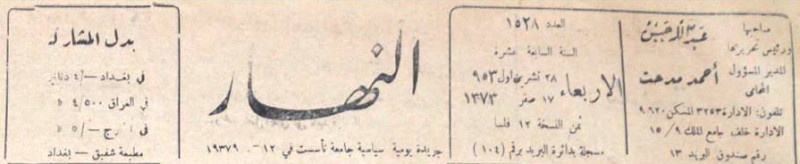 صاحبها
ورئيس تحريرها
عبد الله حسن
المدير المسؤول
المحامي
أحمد مدحت
تلفون: الادارة ٣٢٥٣ المسكن ٩٦٢٠
الادارة خلف جامع الملك ٩ / ١٥
رقم صندوق البريد ١٣
العدد ١٥٢٨
السنة السابعة عشرة
الاربعاء
٢٨ تشرين اول ٩٥٣
١٧ صفر ١٣٧٣
ثمن النسخة ١٢ فلسا
مسجلة بدائرة البريد برقم (١٠٤)
النهار
جريدة يومية سياسية جامعة تأسست في ١٢-
بدل المشاركة
في بغداد -/٤ دنانير
في العراق ٤/٥٠٠ »
في الخارج -/٥ »
مطبعة شفيق - بغداد